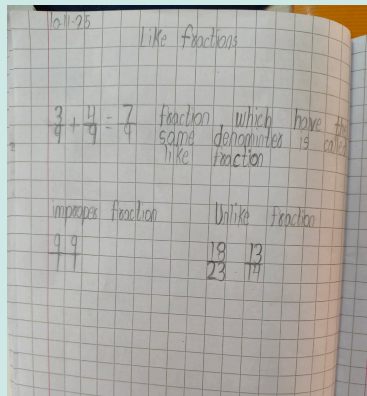 Like fractions
3/9 + 4/9 = 7/9 fraction which have the
same denominter is called
like fraction
improper fraction Unlike fraction
18/23 13/14